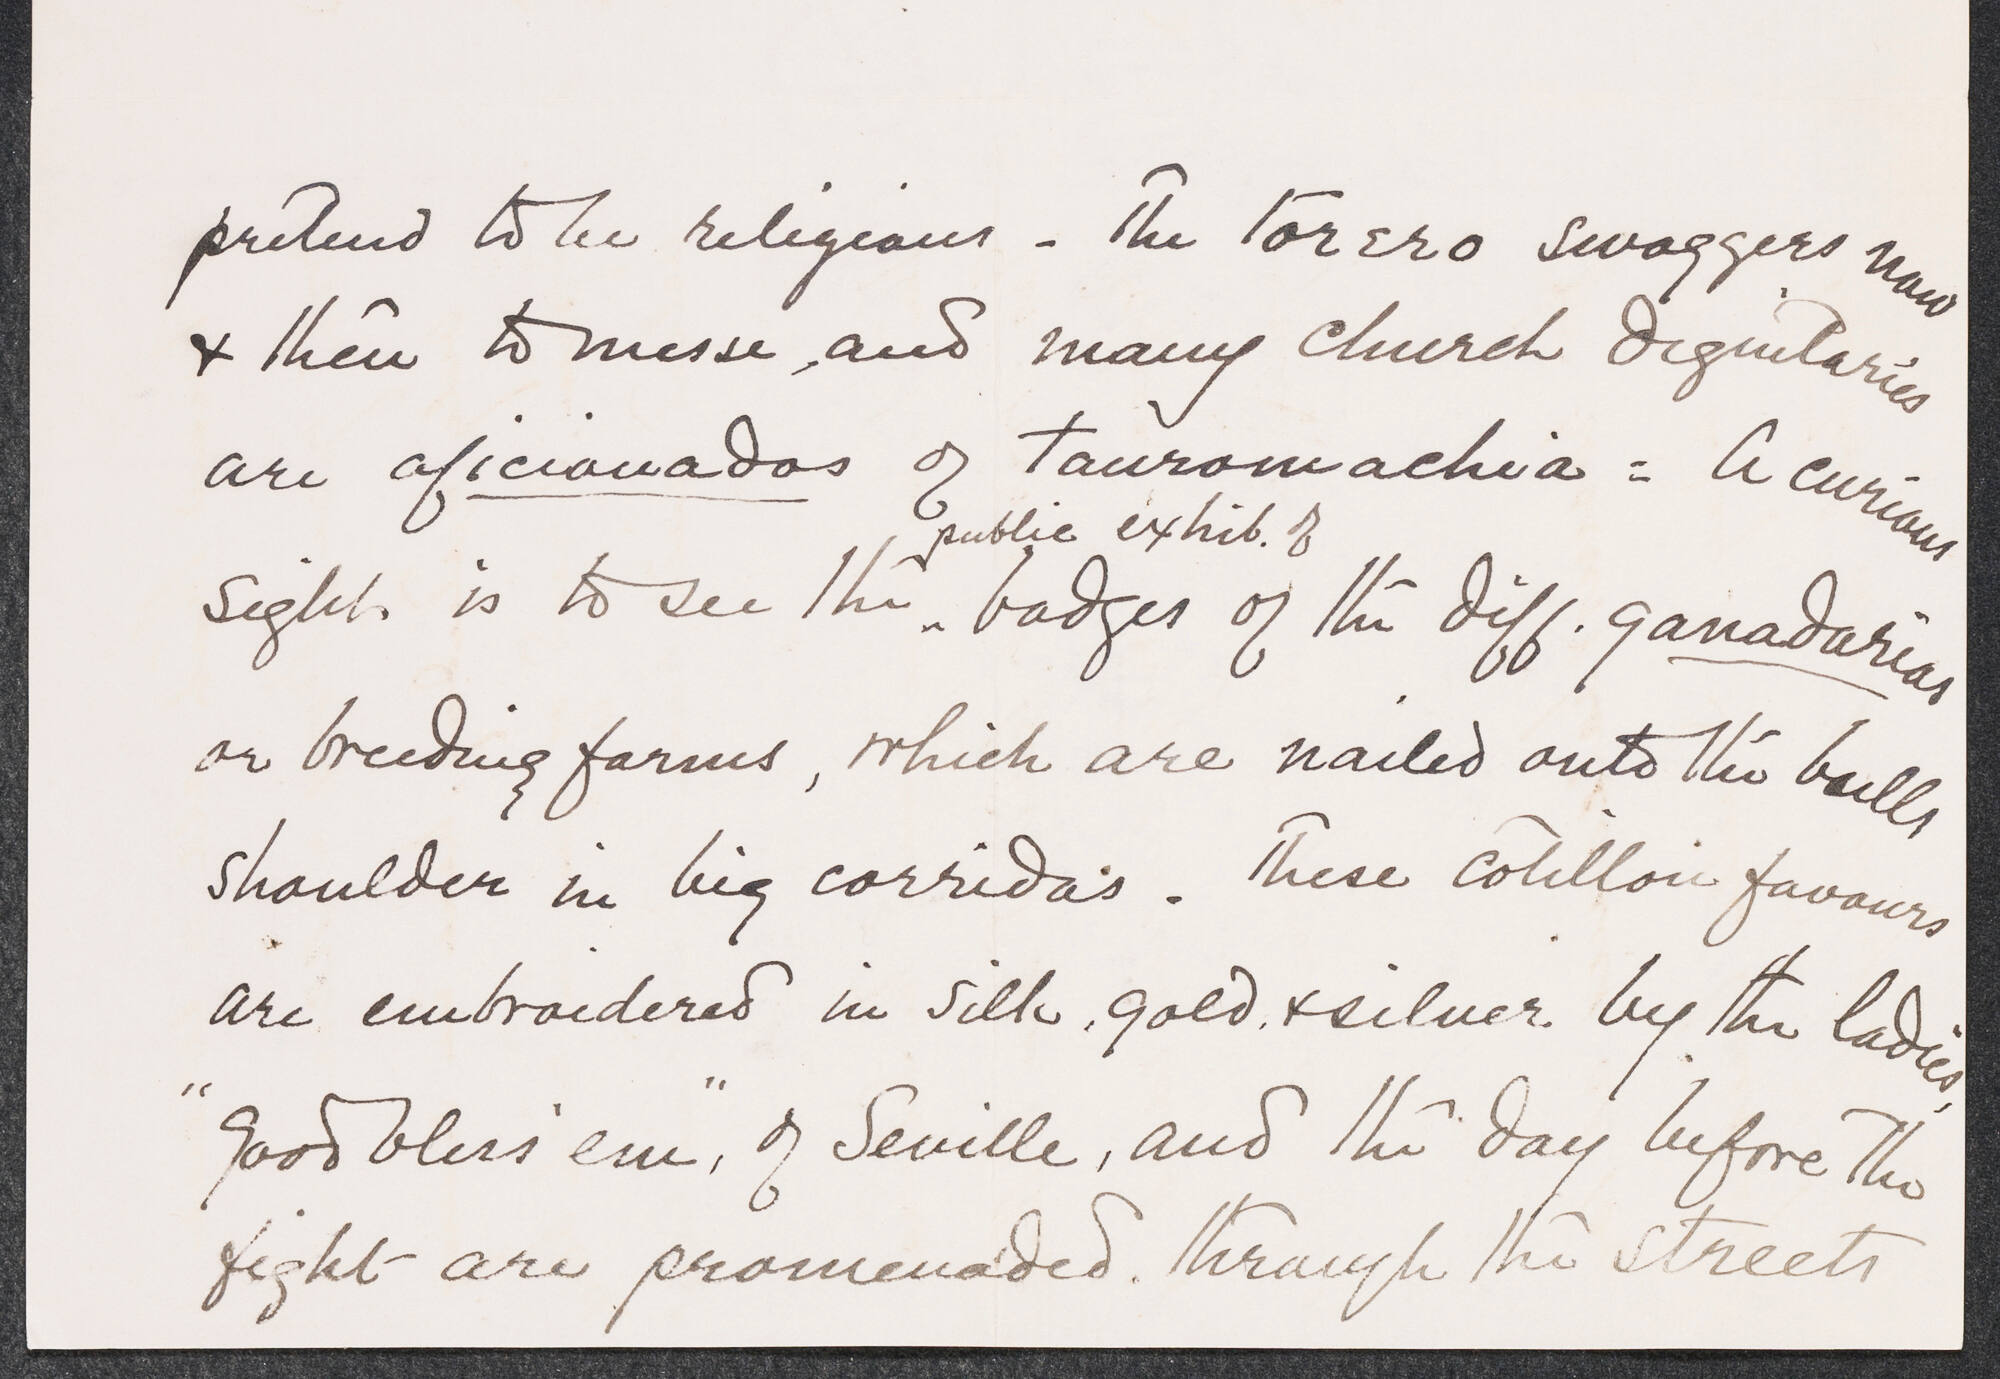 pretend to be religious - The torero swaggers now
& then to messe, and many church dignitaries
are aficionados of Tauromachia = A curious
public exhib. of
sight is to see the badges of the diff. ganadarias
or breeding farms, which are nailed onto the bulls
shoulder in big corridas. These cotillon favours
are embroidered in silk, gold, & silver by the ladies,
"Good bless 'em", of Seville, and the day before the
fight are promenaded through the streets